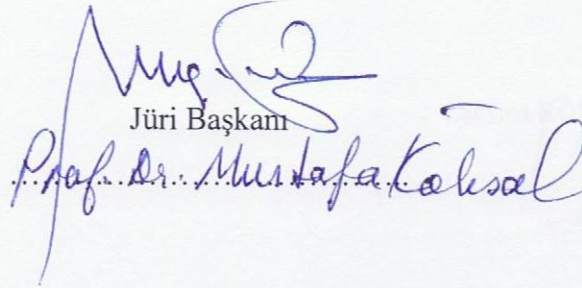 Jüri Başkanı
Prof. Dr. Mustafa Köksal